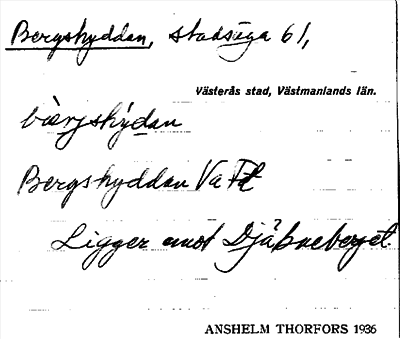 Bergshyddan, stadsäga 61,
Västerås stad, Västmanlands län.
bärjshýdan
Bergshyddan Va
Ligger emot Djäkneberget.
ANSHELM THORFORS 1936